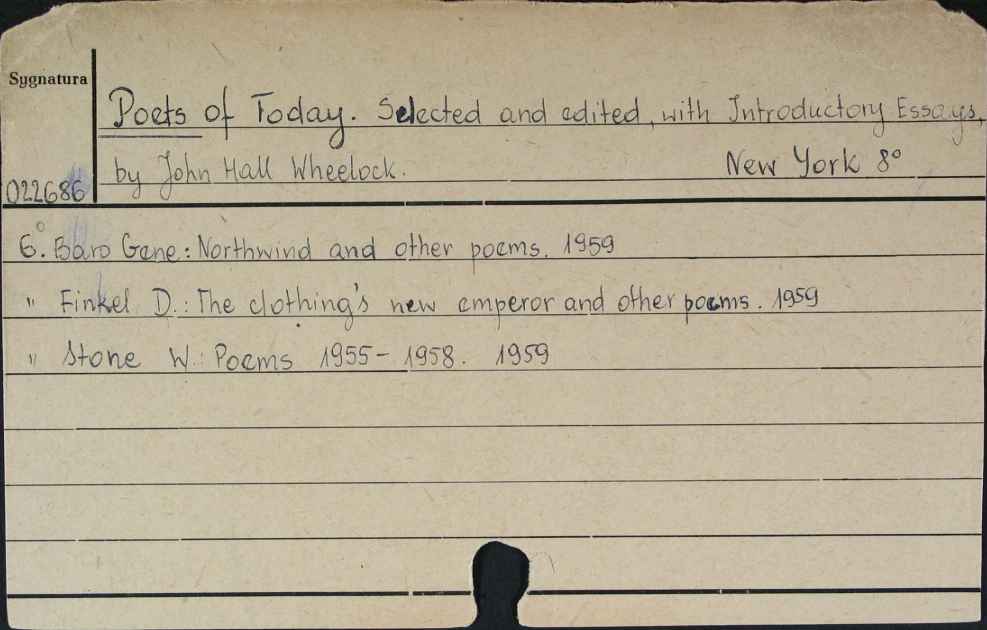 Sygnatura
Poets of Today. Selected and edited, with Introductory Essays,
by John Hall Wheelock. New York 8°
022686
6.° Baro Gene: Northwind and other poems. 1959
" Finkel D.: The clothing's new emperor and other poems. 1959
" Stone W.: Poems 1955-1958. 1959